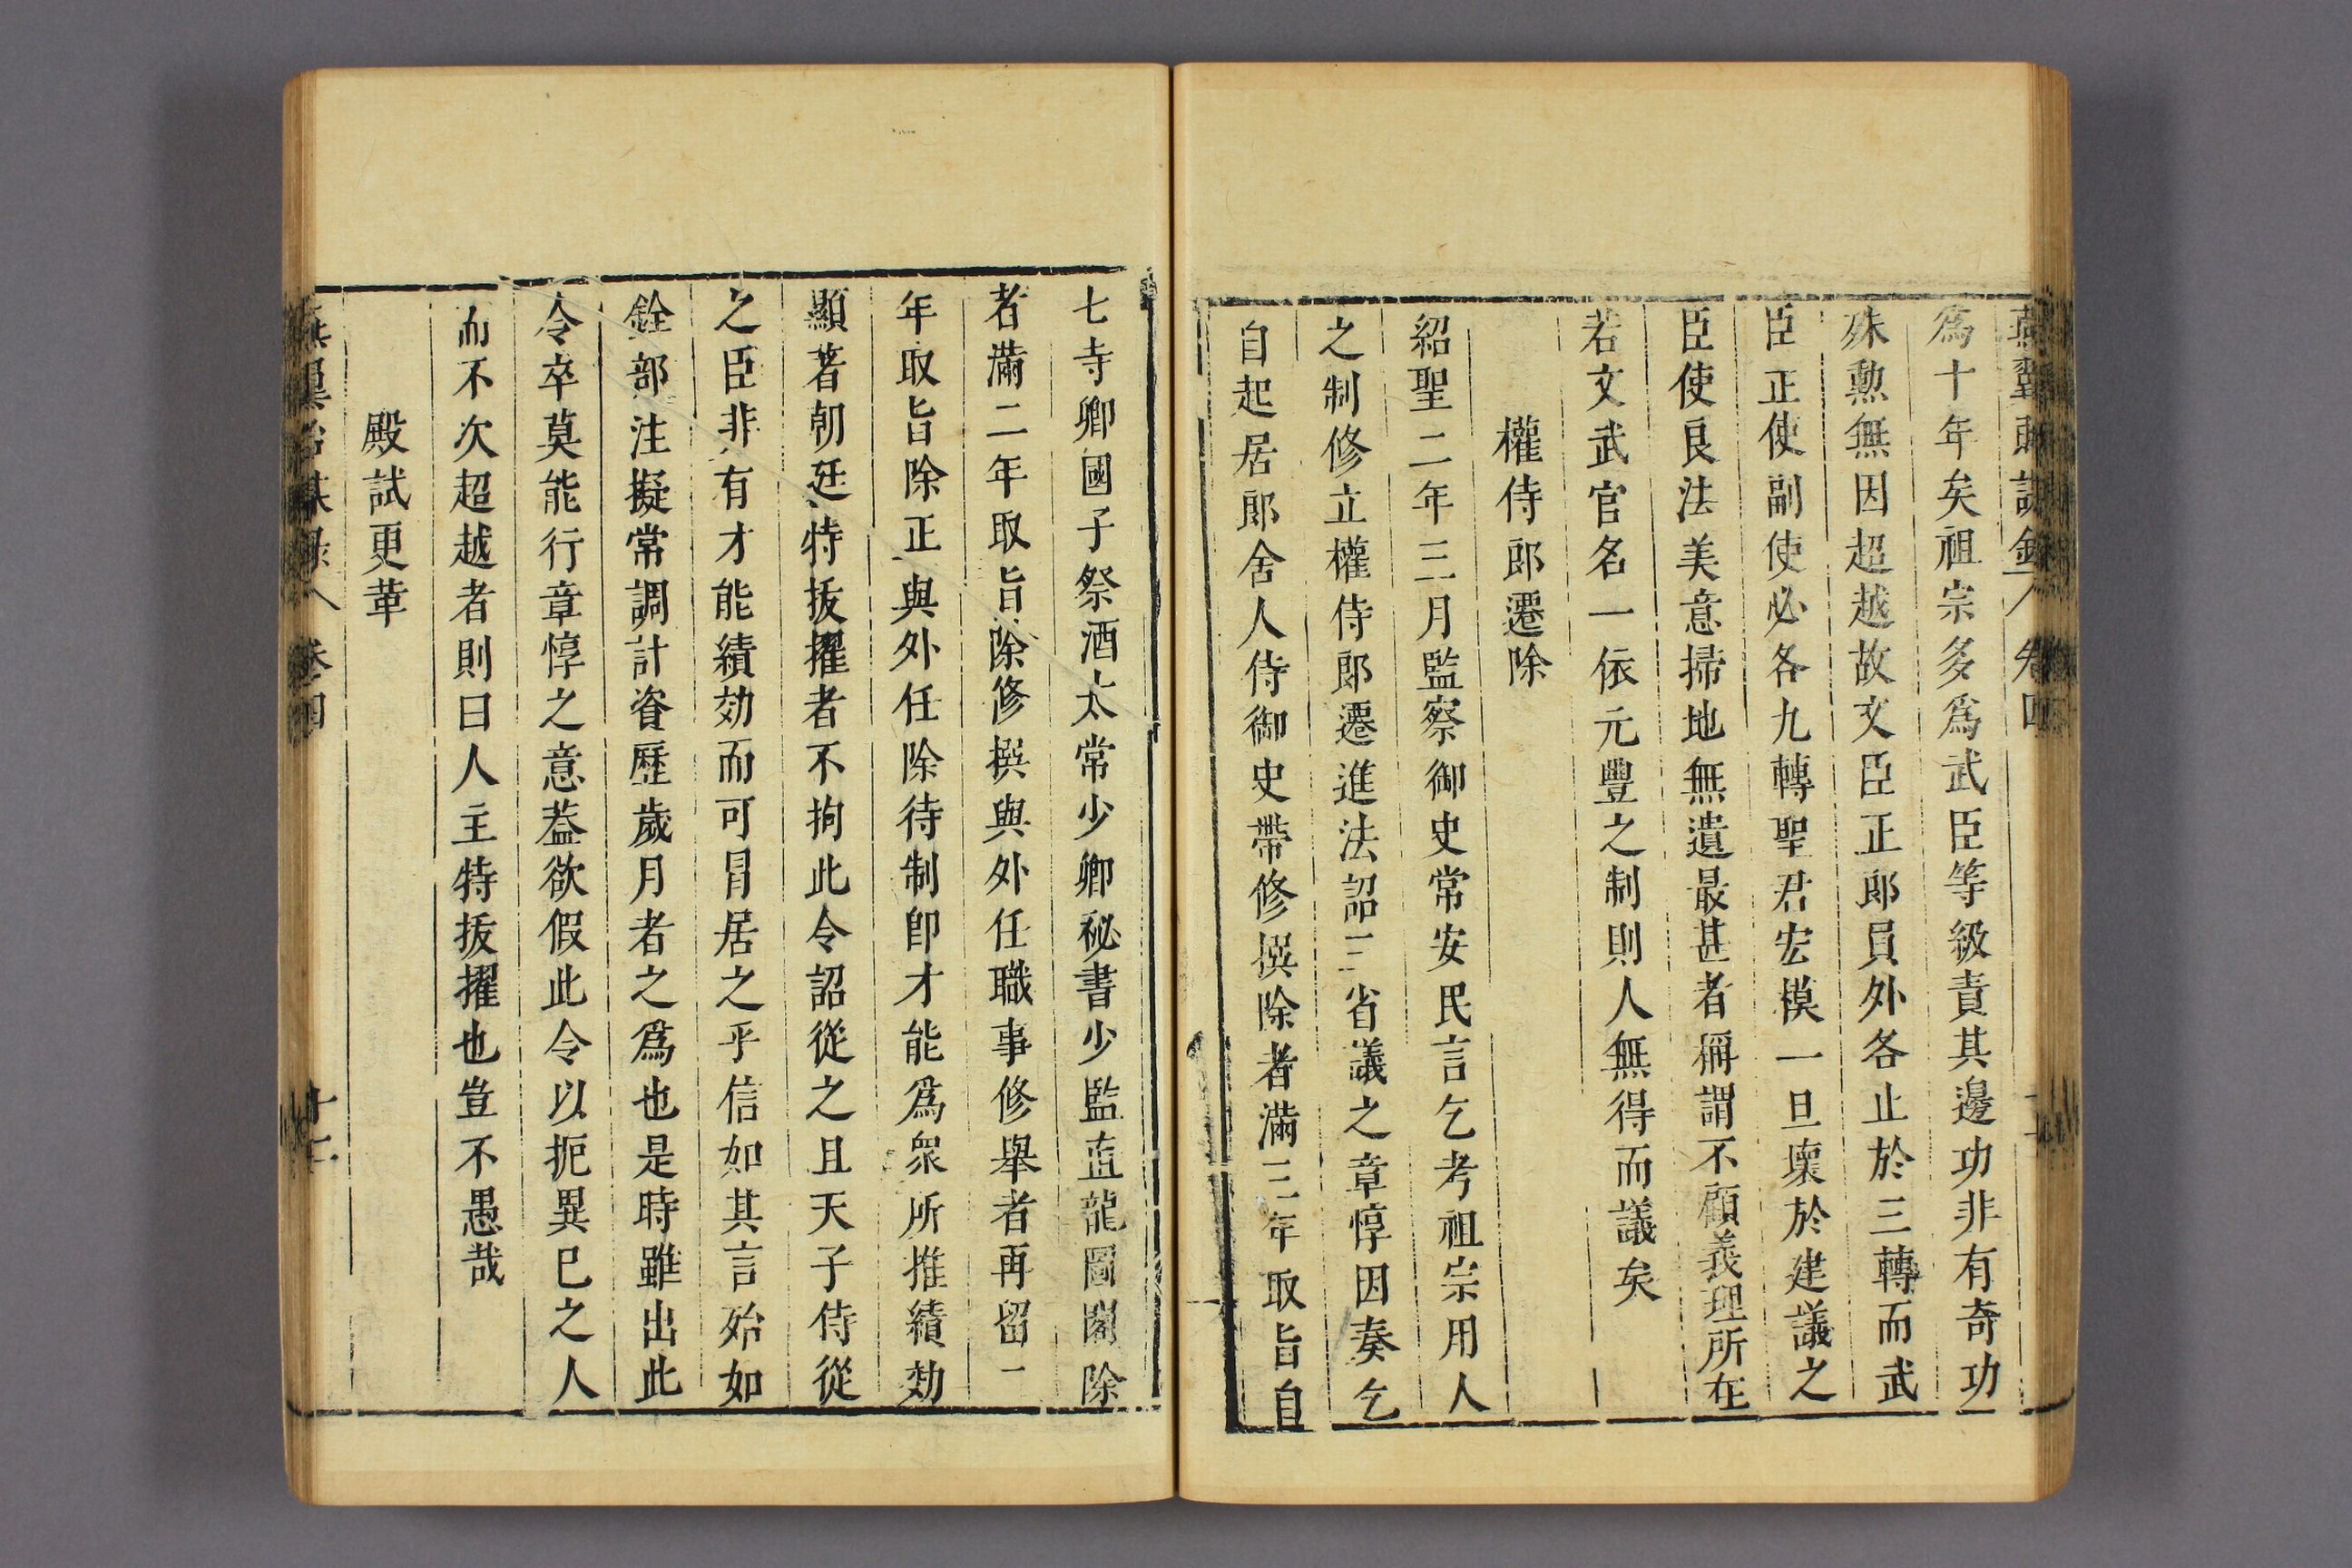 燕翼詒謀錄 卷四
爲十年矣祖宗多爲武臣等級責其邊功非有奇功
殊勲無因超越故文臣正郎員外各止於三轉而武
臣正使副使必各九轉聖君宏模一旦壞於建議之
臣使良法美意掃地無遺最甚者稱謂不顧義理所在
若文武官名一依元豐之制則人無得而議矣
權侍郎遷除
紹聖二年三月監察御史常安民言乞考祖宗用人
之制修立權侍郎遷進法詔三省議之章惇因奏乞
自起居郎舍人侍御史帶修撰除者滿三年取旨自
七寺卿國子祭酒太常少卿秘書少監直龍圖閣除
者滿二年取旨除修撰與外任職事修舉者再留一
年取旨除正與外任除待制卽才能爲衆所推績効
顯著朝廷特拔擢者不拘此令詔從之且天子侍從
之臣非有才能績効而可冒居之乎信如其言殆如
銓部注擬常調計資歷歲月者之爲也是時雖出此
令卒莫能行章惇之意葢欲假此令以扼異已之人
而不次超越者則曰人主特拔擢也豈不愚哉
殿試更革
燕翼詒謀錄 卷四 十二